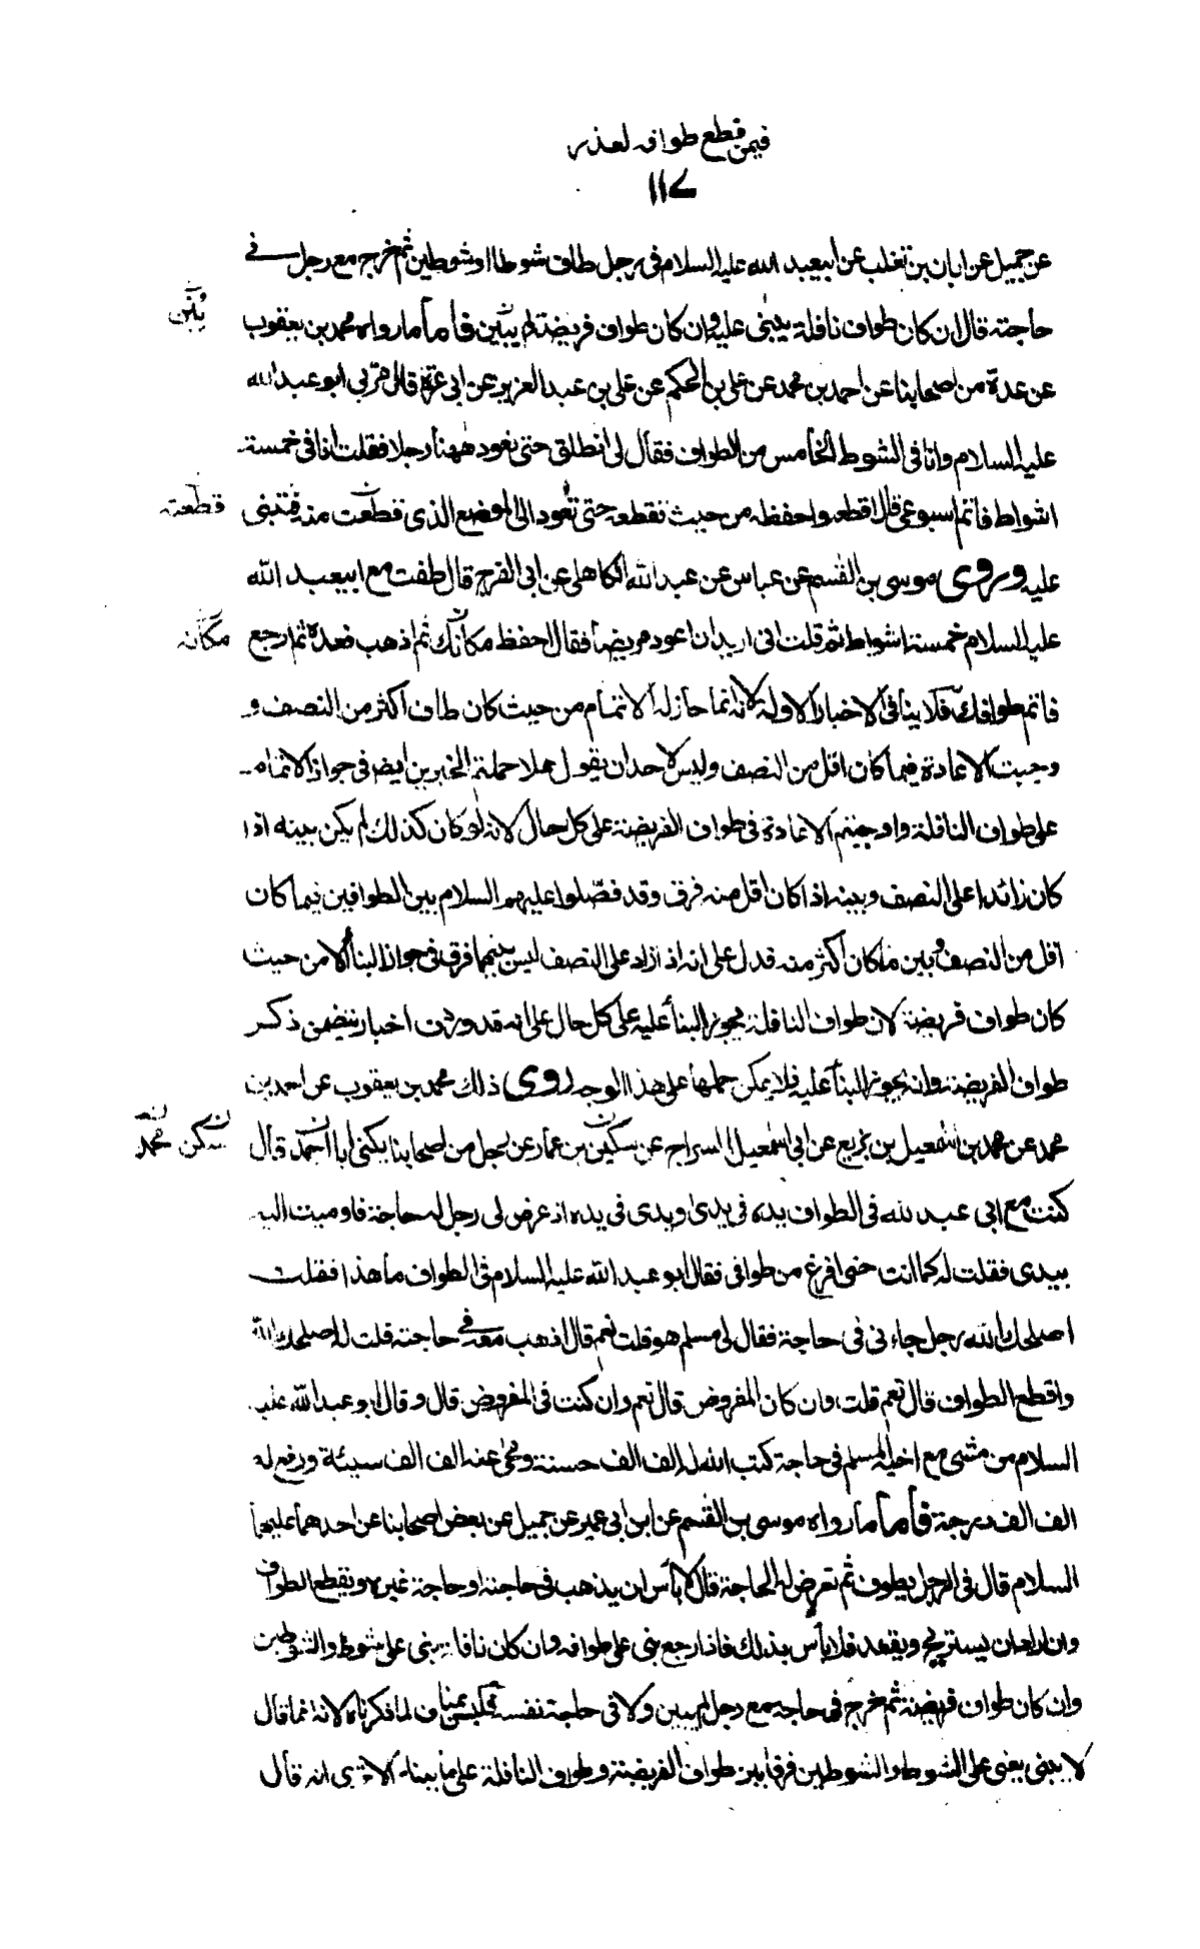 فيمن قطع طوافه لعذر
١١٧
عن جميل عن ابان بن تغلب عن ابيعبد الله عليه السلام في رجل طاف شوطا اوشوطين ثم خرج مع رجل في
حاجته قال ان كان طواف نافلة يبنى عليه وان كان طواف فريضة لم يبن فاما ما رواه محمد بن يعقوب
يبن
عن عدة من اصحابنا عن احمد بن محمد عن علي بن الحكم عن علي بن عبد العزيز عن ابي غرة قال مر بي ابو عبد الله
عليه السلام وانا في الشوط الخامس من الطواف فقال لي انطلق حتى نعود ههنا رجلا فقلت انا في خمسة
اشواط فاتم اسبوعي قال اقطعه واحفظه من حيث تقطعه حتى تعود الى الموضع الذي قطعت منه فتبني
قطعته
عليه وروى موسى بن القسم عن عباس عن عبد الله الكاهلي عن ابي الفرج قال طفت مع ابيعبد الله
عليه السلام خمسة اشواط ثم قلت اني اريد ان اعود مريضا فقال احفظ مكانك ثم اذهب فعده ثم ارجع
مكانه
فاتم طوافك فلا ينافي الاخبار الاولة لانه انما جاز له الاتمام من حيث كان طاف اكثر من النصف و
وجبت الاعادة فيما كان اقل من النصف وليس لاحد ان يقول هلا حملتم الخبرين ايضه في جواز الاتمام
على طواف النافلة واوجبتم الاعادة في طواف الفريضة على كل حال لانه لو كان كذلك لم يكن بينه اذا
كان زائدا على النصف وبينه اذا كان اقل منه فرق وقد فصلوا عليهم السلام بين الطوافين فيما كان
اقل من النصف وبين ما كان اكثر منه فدل على انه اذا زاد على النصف ليس بينهما فرق في جواز البنأ الا من حيث
كان طواف فريضة لان طواف النافلة يجوز البنأ عليه على كل حال على انه قد وردت اخبار يتضمن ذكر
طواف الفريضة وانه يجوز البنأ عليه فلا يمكن حملها على هذا الوجه روى ذلك محمد بن يعقوب عن احمد بن
محمد عن محمد بن اسمعيل بن بزيع عن ابي اسمعيل السراج عن سكين بن عمار عن رجل من اصحابنا يكنى ابا احمد قال
سكن محمد
كنت مع ابي عبد الله في الطواف يده في يدي ويدي في يده اذ عرض لي رجل له حاجة فاوميت اليه
بيدي فقلت له كما انت حتى افرغ من طوافي فقال ابو عبد الله عليه السلام في الطواف ما هذا فقلت
اصلحك الله رجل جاءني في حاجة فقال لي مسلم هو قلت نعم قال اذهب معه في حاجته قلت له اصلحك الله
واقطع الطواف قال نعم قلت وان كان المفروض قال نعم وان كنت في المفروض قال وقال ابو عبد الله عليه
السلام من مشى مع اخيه المسلم في حاجة كتب الله له الف الف حسنة ومحى عنه الف الف سيئة ورفع له
الف الف درجة فاما ما رواه موسى بن القسم عن ابن ابي عمير عن جميل عن بعض اصحابنا عن احدهما عليهما
السلام قال في الرجل يطوف ثم تعرض له الحاجة قال لا بأس ان يذهب في حاجته او حاجة غيره ويقطع الطواف
وان اراد ان يستريح ويقعد فلا بأس بذلك فاذا رجع بنى على طوافه وان كان نافلة بنى على شوط والشوطين
وان كان طواف فريضة ثم خرج في حاجة مع رجل لم يبن ولا في حاجة نفسه فليس بمناف لما ذكرناه لانه انما قال
لا يبني يعني على الشوط والشوطين فرقا بين طواف الفريضة وطواف النافلة على ما بيناه الا ترى انه قال